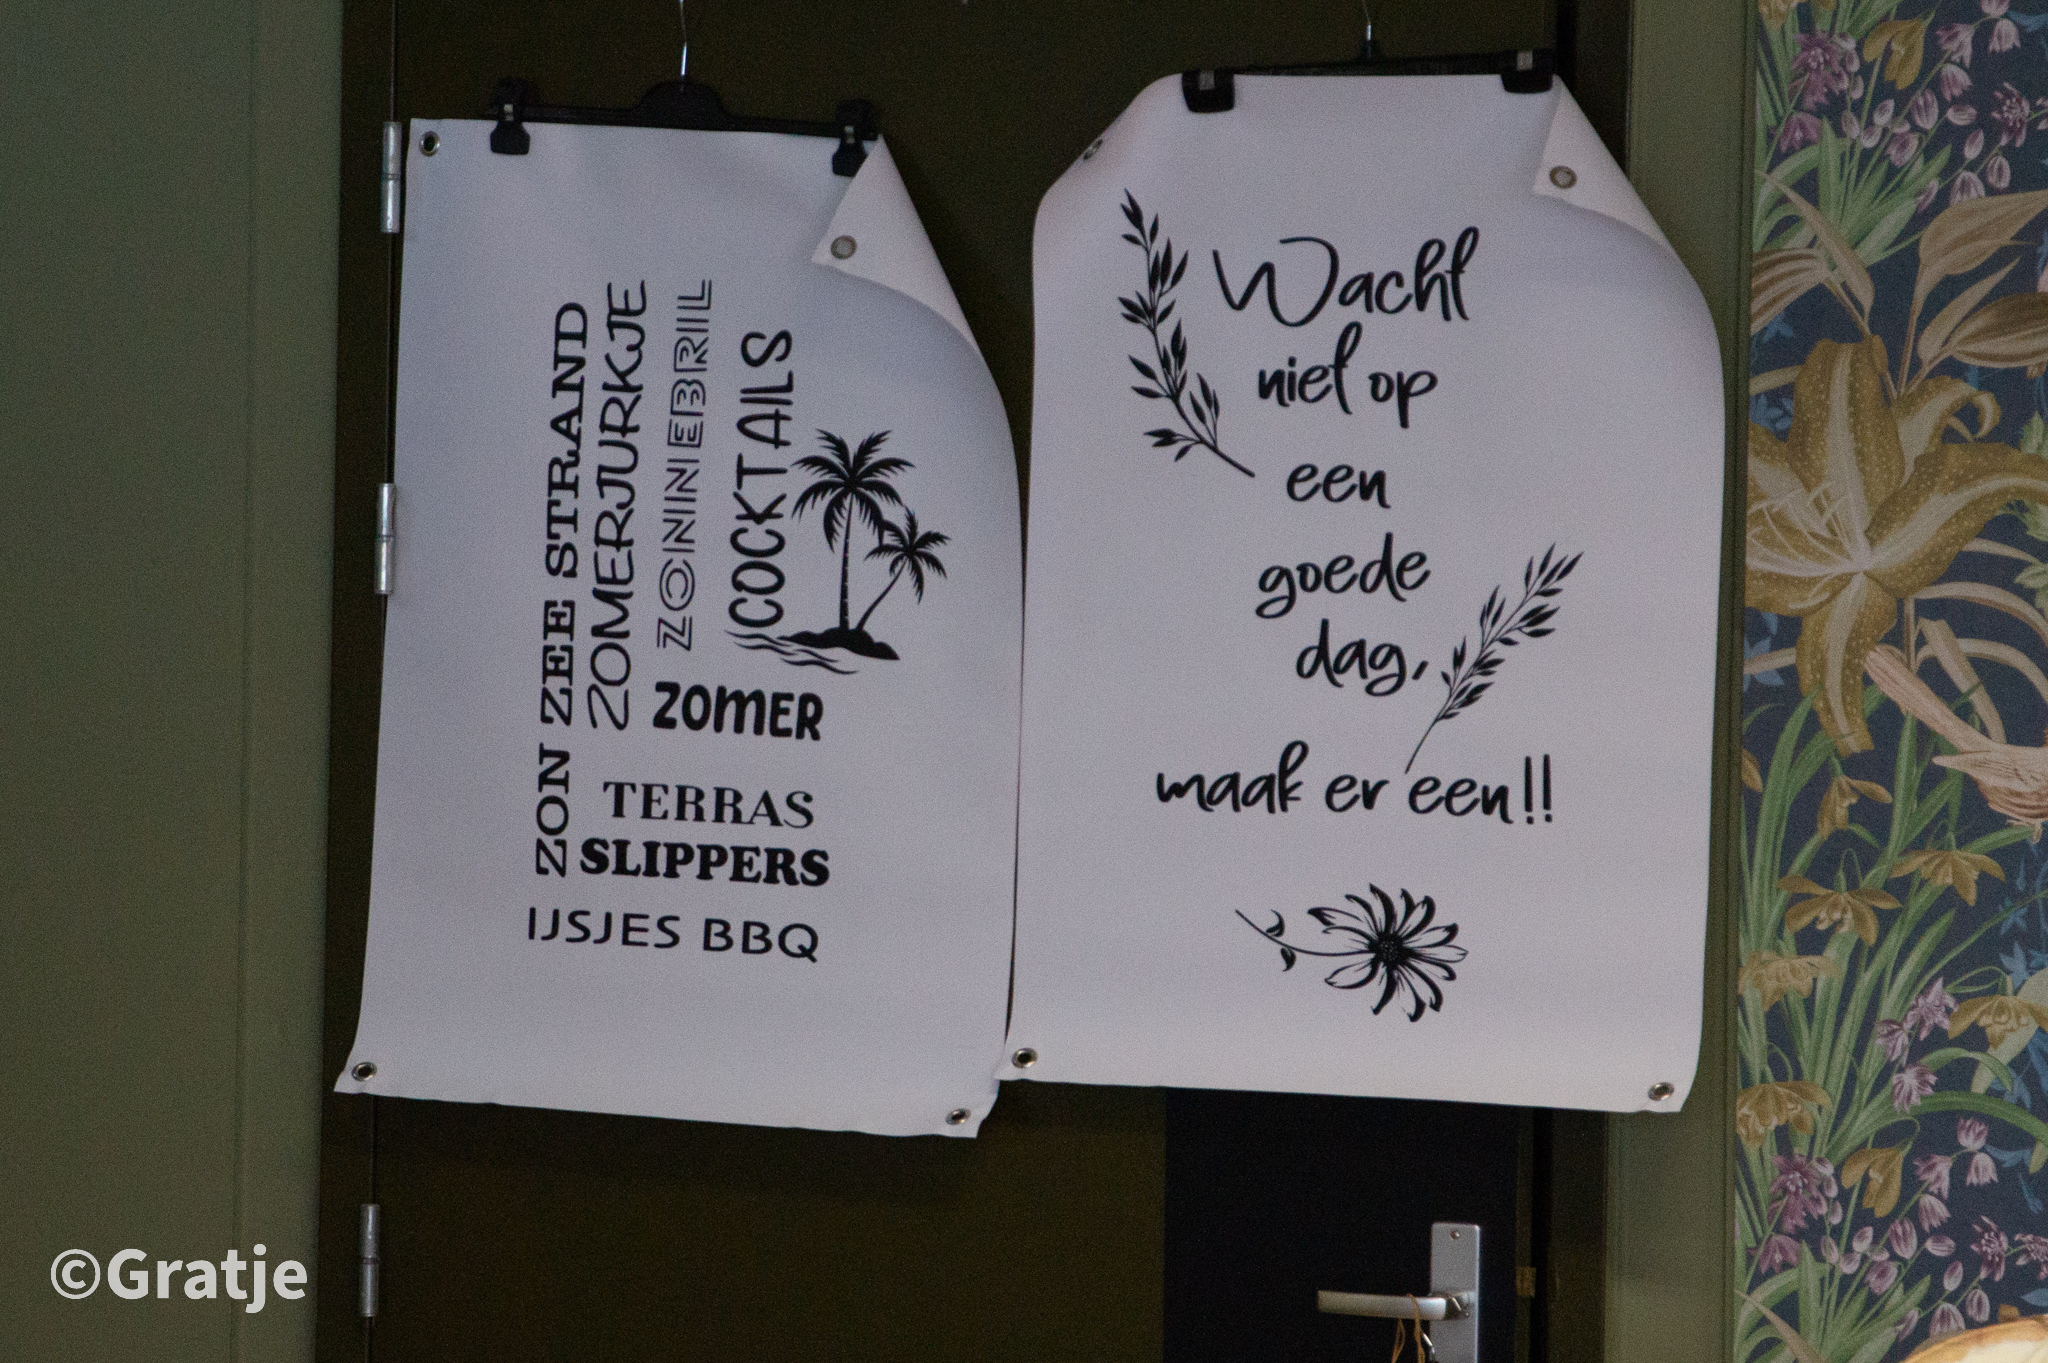 ZON ZEE STRAND
ZOMERJURKJE
ZONNEBRIL
COCKTAILS
ZOMER
TERRAS
SLIPPERS
IJSJES BBQ
Wacht
niet op
een
goede
dag,
maak er een!!
©Gratje